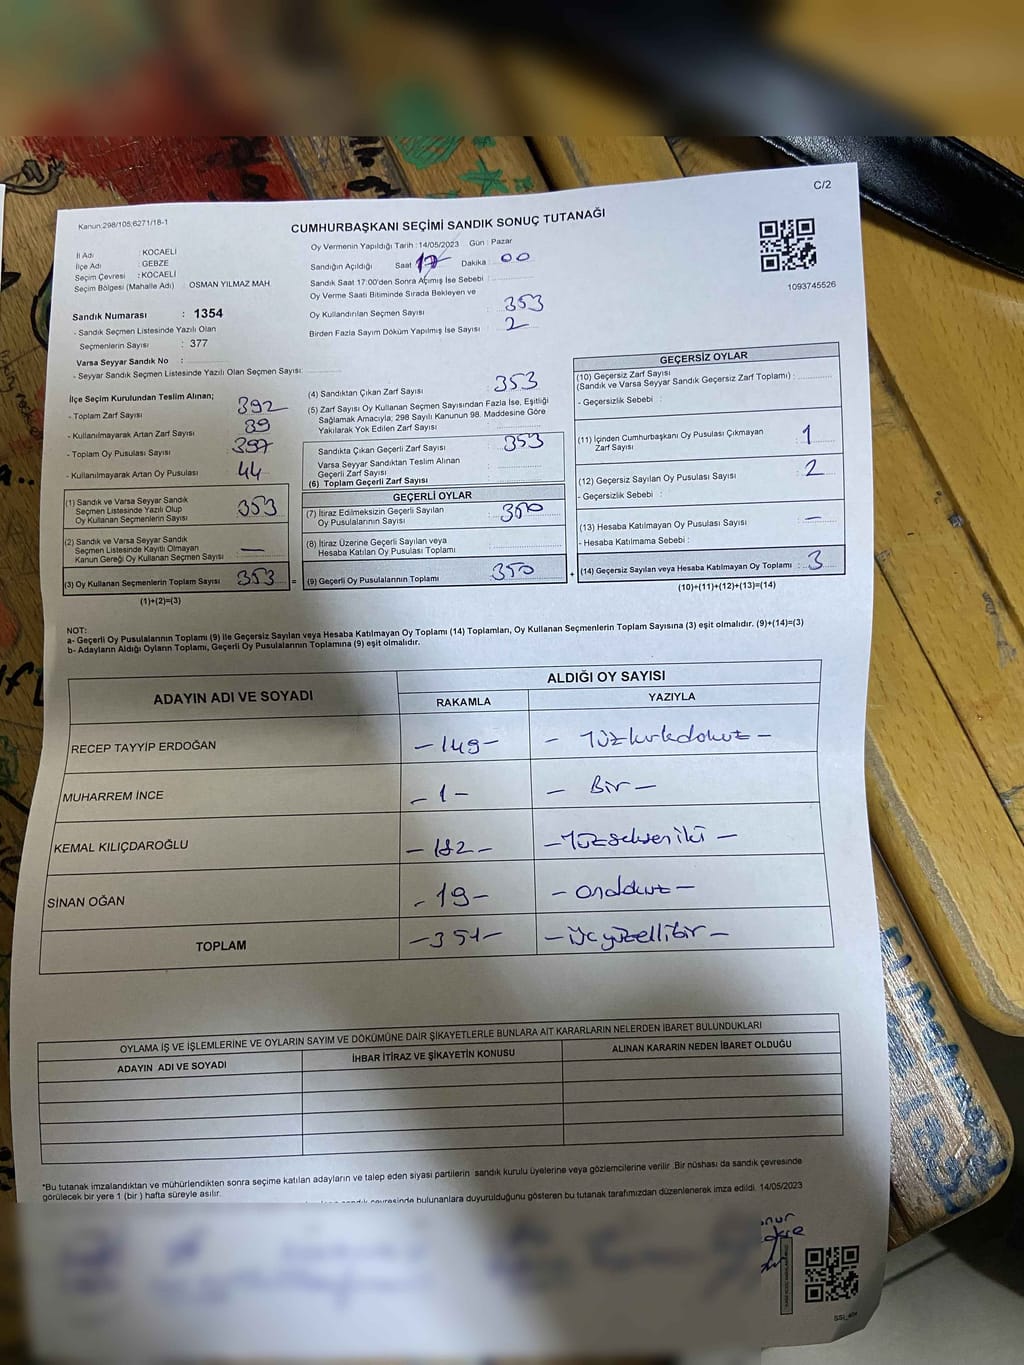 C/2
Kanun:298/105;6271/18-1
CUMHURBAŞKANI SEÇİMİ SANDIK SONUÇ TUTANAĞI
İl Adı : KOCAELİ
İlçe Adı : GEBZE
Seçim Çevresi : KOCAELİ
Seçim Bölgesi (Mahalle Adı) : OSMAN YILMAZ MAH
Oy Vermenin Yapıldığı Tarih : 14/05/2023 Gün : Pazar
Sandığın Açıldığı Saat 17 Dakika : 00
Sandık Saat 17:00'den Sonra Açılmış İse Sebebi :
Oy Verme Saati Bitiminde Sırada Bekleyen ve
Oy Kullandırılan Seçmen Sayısı : 353
Birden Fazla Sayım Döküm Yapılmış İse Sayısı : 2
1093745526
Sandık Numarası : 1354
- Sandık Seçmen Listesinde Yazılı Olan
Seçmenlerin Sayısı : 377
Varsa Seyyar Sandık No :
- Seyyar Sandık Seçmen Listesinde Yazılı Olan Seçmen Sayısı:
İlçe Seçim Kurulundan Teslim Alınan;
- Toplam Zarf Sayısı 392
- Kullanılmayarak Artan Zarf Sayısı 39
- Toplam Oy Pusulası Sayısı 397
- Kullanılmayarak Artan Oy Pusulası 44
(1) Sandık ve Varsa Seyyar Sandık
Seçmen Listesinde Yazılı Olup
Oy Kullanan Seçmenlerin Sayısı 353
(2) Sandık ve Varsa Seyyar Sandık
Seçmen Listesinde Kayıtlı Olmayan
Kanun Gereği Oy Kullanan Seçmen Sayısı —
(3) Oy Kullanan Seçmenlerin Toplam Sayısı 353 =
(1)+(2)=(3)
(4) Sandıktan Çıkan Zarf Sayısı : 353
(5) Zarf Sayısı Oy Kullanan Seçmen Sayısından Fazla İse, Eşitliği
Sağlamak Amacıyla; 298 Sayılı Kanunun 98. Maddesine Göre
Yakılarak Yok Edilen Zarf Sayısı :
Sandıkta Çıkan Geçerli Zarf Sayısı : 353
Varsa Seyyar Sandıktan Teslim Alınan
Geçerli Zarf Sayısı :
(6) Toplam Geçerli Zarf Sayısı :
GEÇERLİ OYLAR
(7) İtiraz Edilmeksizin Geçerli Sayılan
Oy Pusulalarının Sayısı : 350
(8) İtiraz Üzerine Geçerli Sayılan veya
Hesaba Katılan Oy Pusulası Toplamı :
(9) Geçerli Oy Pusulalarının Toplamı : 350 +
GEÇERSİZ OYLAR
(10) Geçersiz Zarf Sayısı
(Sandık ve Varsa Seyyar Sandık Geçersiz Zarf Toplamı) :
- Geçersizlik Sebebi :
(11) İçinden Cumhurbaşkanı Oy Pusulası Çıkmayan
Zarf Sayısı : 1
(12) Geçersiz Sayılan Oy Pusulası Sayısı : 2
- Geçersizlik Sebebi :
(13) Hesaba Katılmayan Oy Pusulası Sayısı : —
- Hesaba Katılmama Sebebi :
(14) Geçersiz Sayılan veya Hesaba Katılmayan Oy Toplamı : 3
(10)+(11)+(12)+(13)=(14)
NOT:
a- Geçerli Oy Pusulalarının Toplamı (9) ile Geçersiz Sayılan veya Hesaba Katılmayan Oy Toplamı (14) Toplamları, Oy Kullanan Seçmenlerin Toplam Sayısına (3) eşit olmalıdır. (9)+(14)=(3)
b- Adayların Aldığı Oyların Toplamı, Geçerli Oy Pusulalarının Toplamına (9) eşit olmalıdır.
ADAYIN ADI VE SOYADI
ALDIĞI OY SAYISI
RAKAMLA YAZIYLA
RECEP TAYYİP ERDOĞAN – 149 – – Yüzkırkdokuz –
MUHARREM İNCE – 1 – – Bir –
KEMAL KILIÇDAROĞLU – 182 – – Yüzseksen iki –
SİNAN OĞAN – 19 – – ondokuz –
TOPLAM – 351 – – üçyüzellibir –
OYLAMA İŞ VE İŞLEMLERİNE VE OYLARIN SAYIM VE DÖKÜMÜNE DAİR ŞİKAYETLERLE BUNLARA AİT KARARLARIN NELERDEN İBARET BULUNDUKLARI
ADAYIN ADI VE SOYADI İHBAR İTİRAZ VE ŞİKAYETİN KONUSU ALINAN KARARIN NEDEN İBARET OLDUĞU
*Bu tutanak imzalandıktan ve mühürlendikten sonra seçime katılan adayların ve talep eden siyasi partilerin sandık kurulu üyelerine veya gözlemcilerine verilir. Bir nüshası da sandık çevresinde
görülecek bir yere 1 (bir) hafta süreyle asılır.
çevresinde bulunanlara duyurulduğunu gösteren bu tutanak tarafımızdan düzenlenerek imza edildi. 14/05/2023